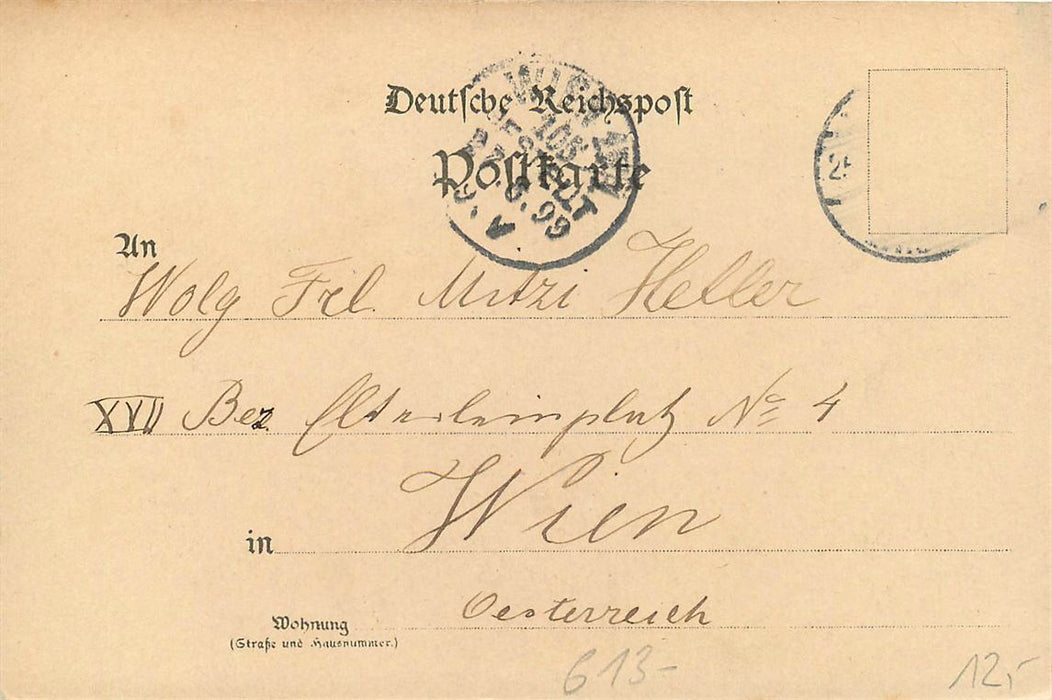 Deutsche Reichspost
Postkarte
BESTELLT
9.V.
An
Wolg Frl. Mitzi Heller
XVII Bez. Elterleinplatz No 4
in Wien
Oesterreich
Wohnung
(Straße und Hausnummer.)
613-
12,-